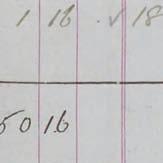 1 16 ✓ 18
50 16